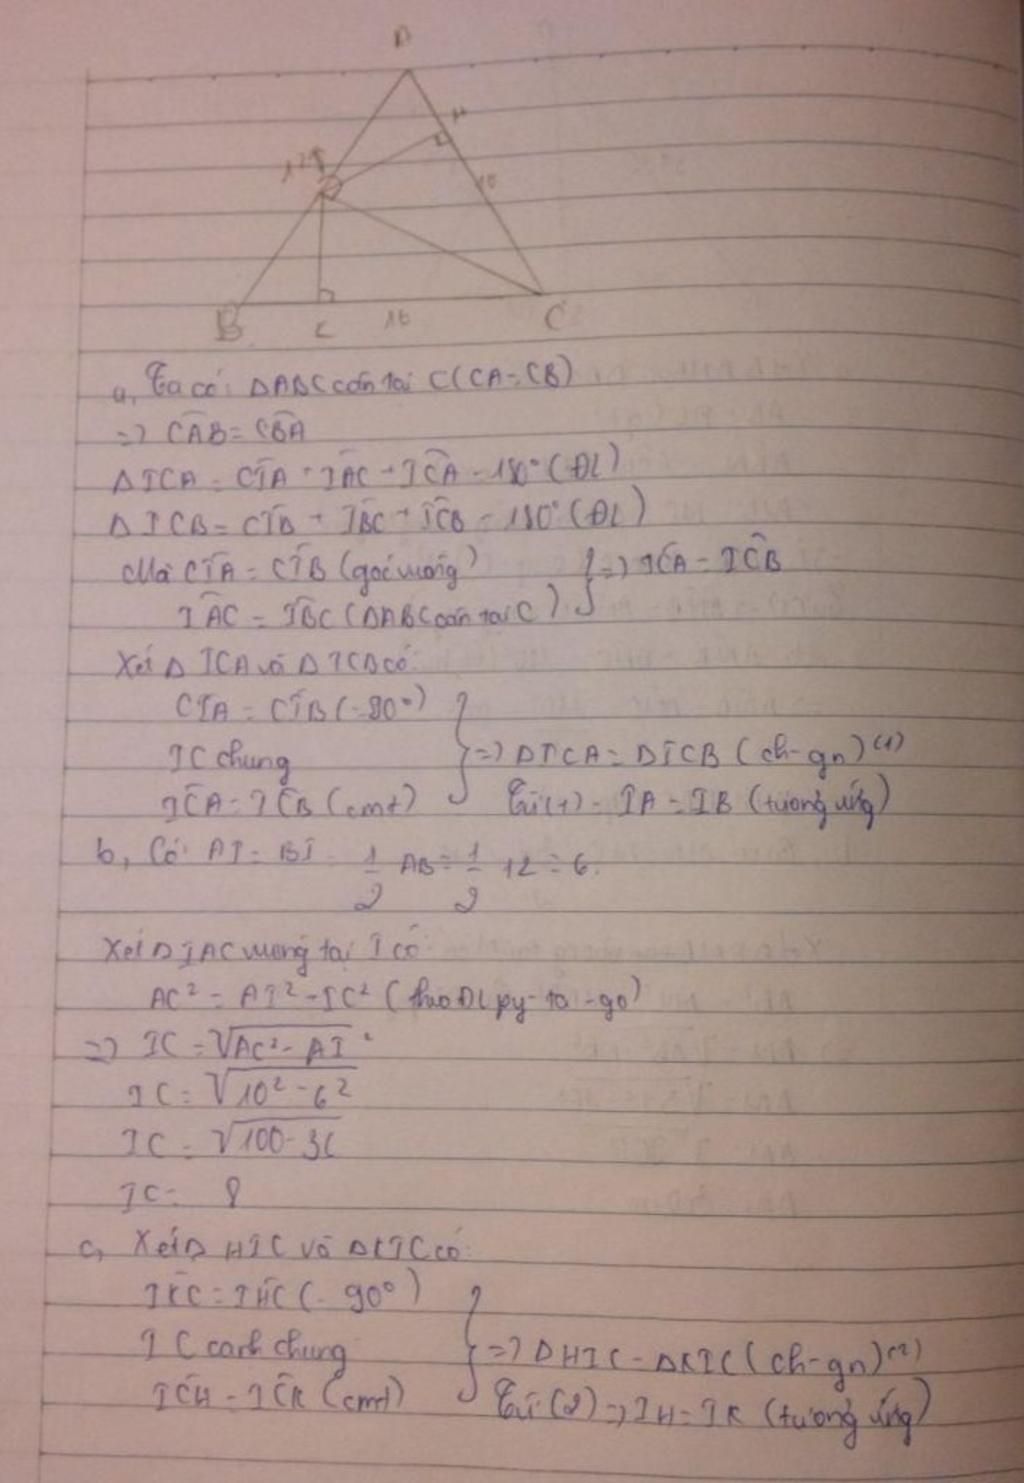 A
H
12
10
B
K
16
C
a, Ta có: ΔABC cân tại C (CA=CB)
=> CÂB = CB̂A
ΔICA = CÎA + IÂC + IĈA = 180° (ĐL)
ΔICB = CÎB + IB̂C + IĈB = 180° (ĐL)
Mà CÎA = CÎB (góc vuông) } => IĈA = IĈB
IÂC = IB̂C (ΔABC cân tại C)
Xét Δ ICA và Δ ICB có:
CÎA = CÎB (=90°)
IC chung } => ΔICA = ΔICB (ch-gn) (1)
IĈA = IĈB (cmt) Từ (1) = IA = IB (tương ứng)
b, Có: AI = BI = 1/2 AB = 1/2 12 = 6.
Xét Δ IAC vuông tại I có
AC² = AI² - IC² (theo ĐL py-ta-go)
=> IC = √AC² - AI²
IC = √10² - 6²
IC = √100 - 36
IC = 8
c, Xét Δ HIC và Δ KIC có:
IK̂C = IĤC (= 90°)
IC cạnh chung } => Δ HIC = ΔKIC (ch-gn) (2)
IĈH = IĈK (cmt) Từ (2) => IH = IK (tương ứng)